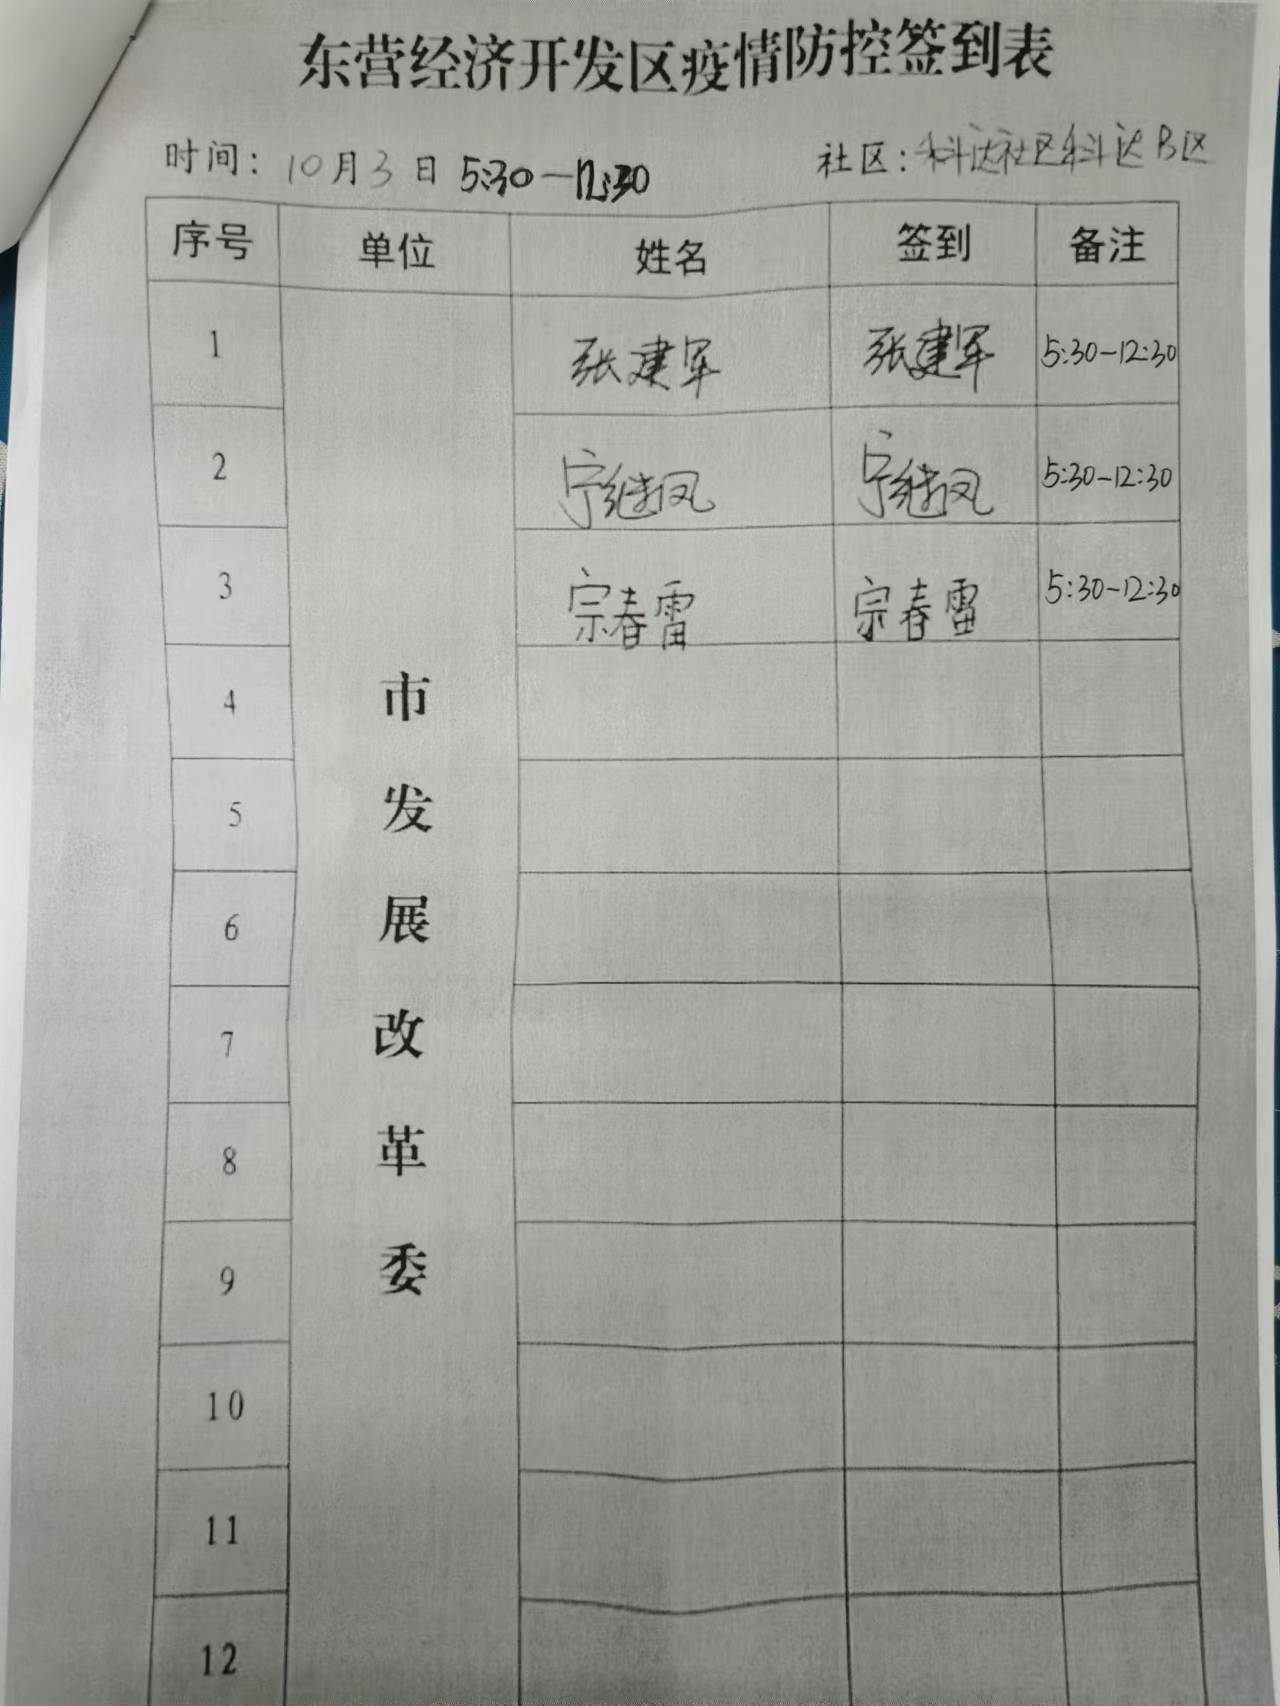 东营经济开发区疫情防控签到表
时间：10月3日 5:30-12:30 社区：科达社区科达B区
序号 单位 姓名 签到 备注
1 张建军 张建军 5:30-12:30
2 宁继凤 宁继凤 5:30-12:30
3 宗春雷 宗春雷 5:30-12:30
市发展改革委
4
5
6
7
8
9
10
11
12